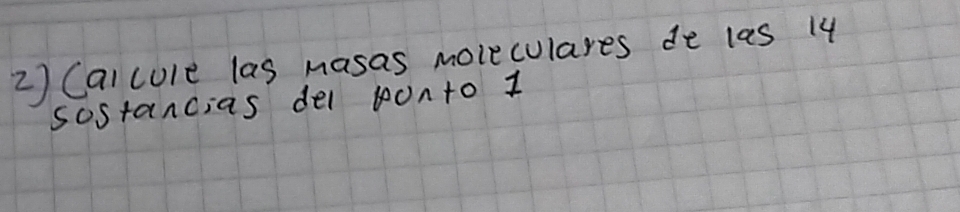 2) Calcule las masas moleculares de las 14
sostancias del punto 1